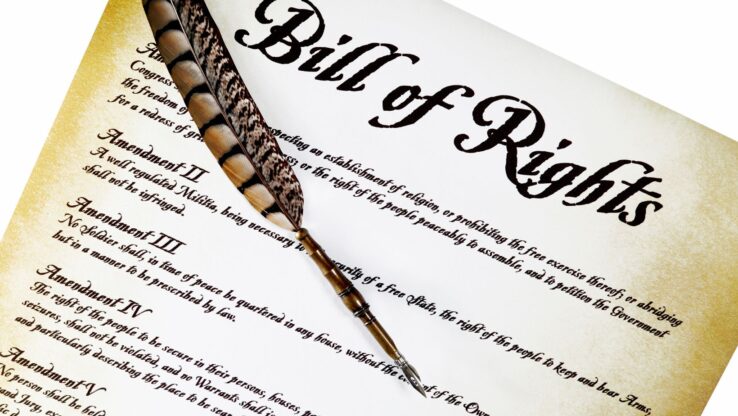 Bill of Rights
Am
Congress specting an establishment of religion, or prohibiting the free exercise thereof; or abridging
the freedom of ess; or the right of the people peaceably to assemble, and to petition the Government
for a redress of gri
Amendment II
A well regulated Militia, being necessary to curity of a free State, the right of the people to keep and bear Arms,
shall not be infringed.
Amendment III
No Soldier shall, in time of peace be quartered in any house, without the of the Own
but in a manner to be prescribed by law.
Amendment IV
The right of the people to be secure in their persons, houses, p
seizures, shall not be violated, and no Warrants shall i
and particularly describing the place to be sear
Amendment V
No person shall be held
and Jury, exc